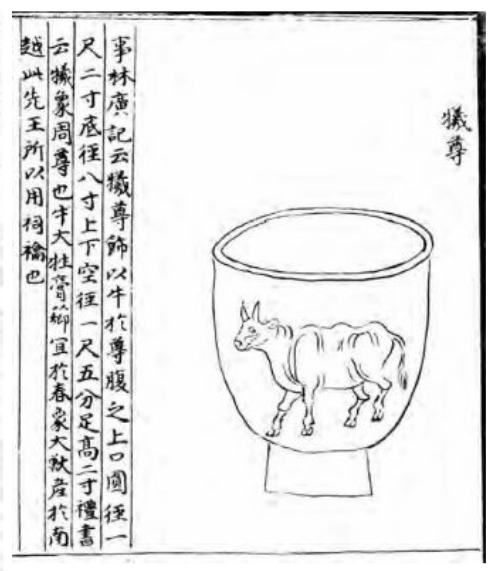 犧尊
事林廣記云犧尊飾以牛扵尊腹之上口圓徑一
尺二寸底徑八寸上下空徑一尺五分足高二寸禮書
云犧象周尊也牛大牡膏薌宜扵春象大獸産扵南
越此先王所以用祠禴也